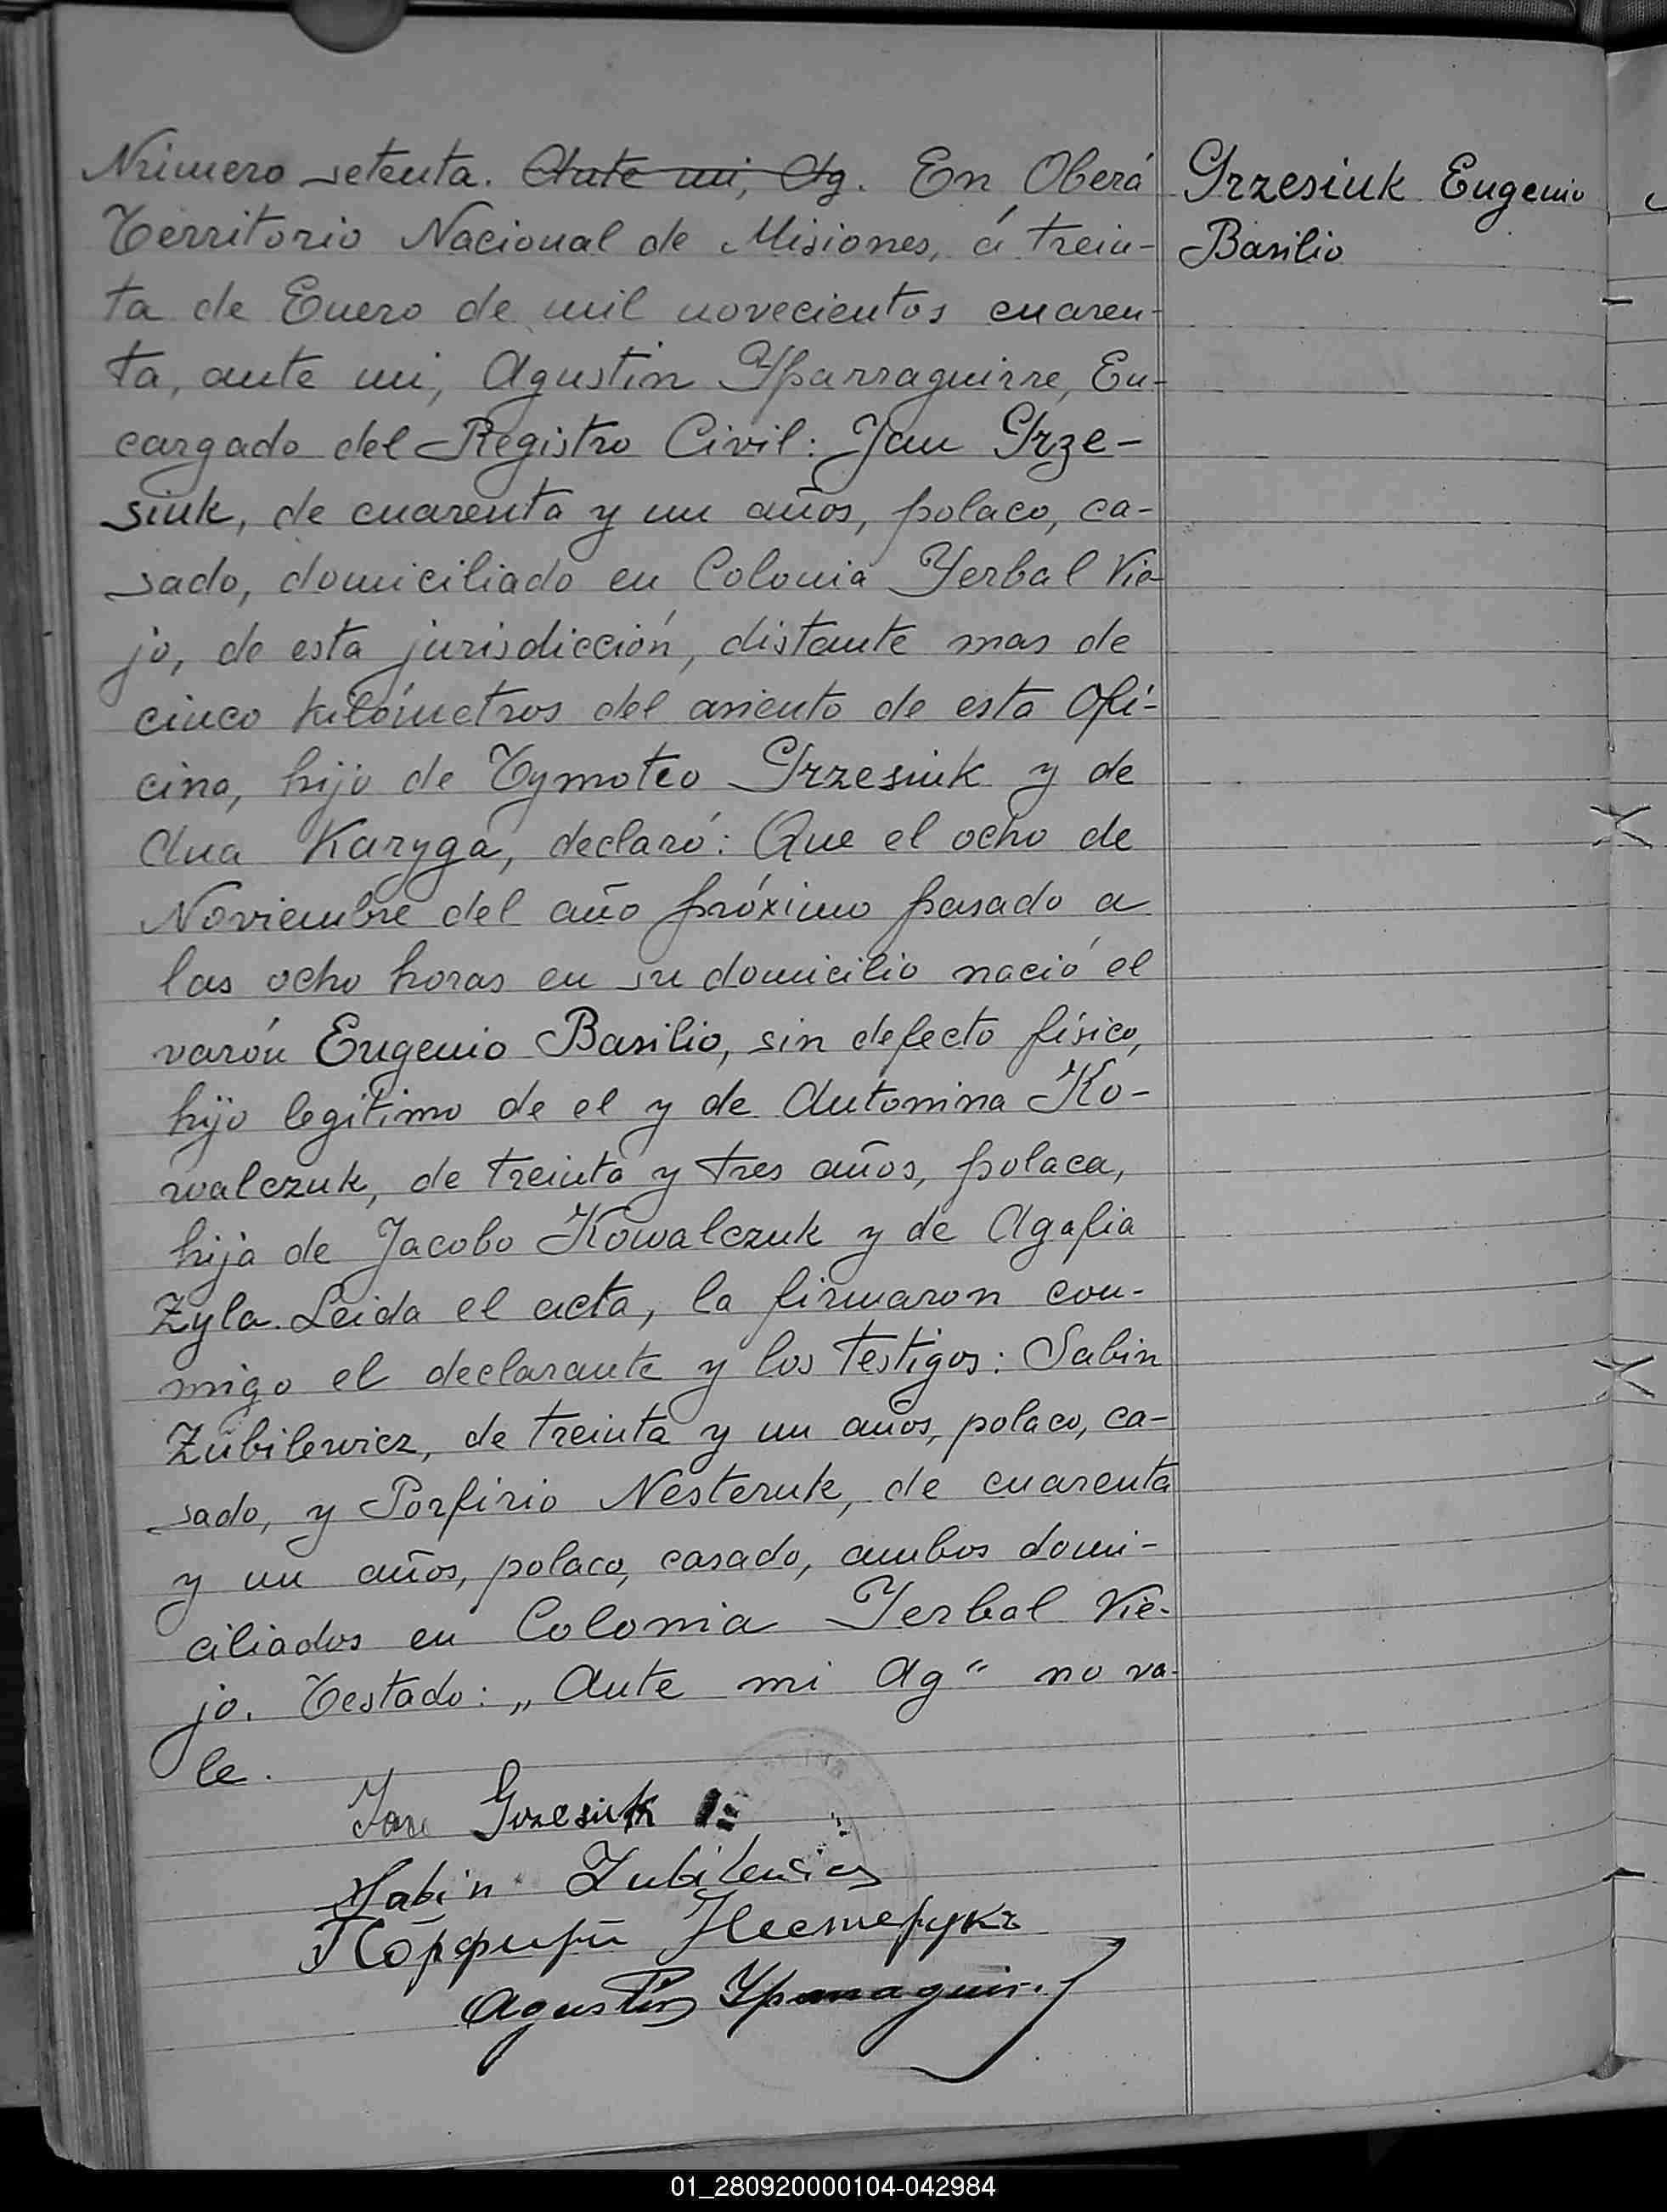 Número setenta. Ante mi, Ag. En Oberá
Territorio Nacional de Misiones, á trein-
ta de Enero de mil novecientos cuaren-
ta, ante mi, Agustin Yparraguirre, En-
cargado del Registro Civil: Jan Grze-
siuk, de cuarenta y un años, polaco, ca-
sado, domiciliado en Colonia Yerbal Vie-
jo, de esta jurisdicción, distante mas de
cinco kilómetros del asiento de esta Ofi-
cina, hijo de Tymoteo Grzesiuk y de
Ana Karyga, declaró: Que el ocho de
Noviembre del año próximo pasado a
las ocho horas en su domicilio nació el
varón Eugenio Basilio, sin defecto físico,
hijo legítimo de el y de Antonina Ko-
walczuk, de treinta y tres años, polaca,
hija de Jacobo Kowalczuk y de Agafia
Zyla. Leida el acta, la firmaron con-
migo el declarante y los testigos: Sabin
Zubilewicz, de treinta y un años, polaco, ca-
sado, y Porfirio Nesteruk, de cuarenta
y un años, polaco, casado, ambos domi-
ciliados en Colonia Yerbal Vie-
jo. Testado: „Ante mi Ag“ no va-
le.
Jan Grzesiuk
Sabin Zubilewicz
Порфирй Нестерукъ
Agustin Yparraguirre
Grzesiuk Eugenio
Basilio
01_280920000104-042984